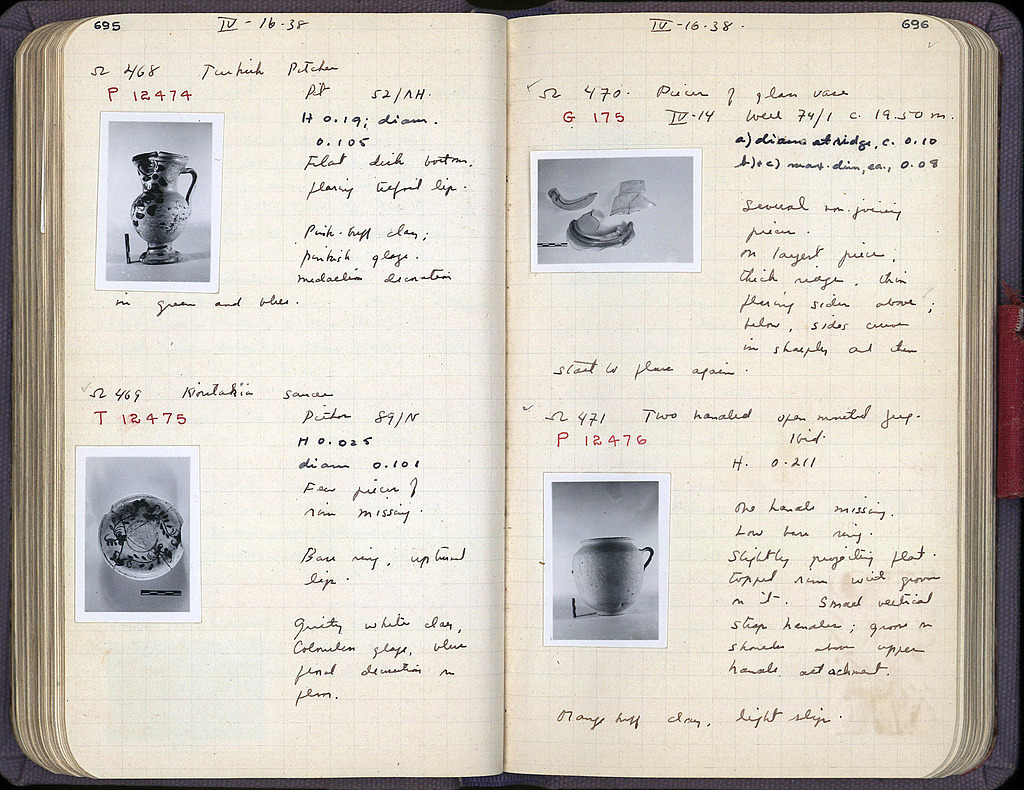 695
IV - 16-38
Ω 468 Turkish Pitcher
P 12474
Pit 52/ΛH.
H 0.19; diam.
0.105
Flat disk bottom,
flaring trefoil lip.
Pink-buff clay;
pinkish glaze.
medallion decoration
in green and blue.
Ω 469 Kioutakia saucer
T 12475
Pithos 89/N
H 0.025
diam 0.101
Few pieces of
rim missing.
Base ring, upturned
lip.
Gritty white clay,
Colourless glaze, blue
floral decoration on
floor.
696
IV - 16-38.
Ω 470. Pieces of glass vase
G 175
IV-14 Well 74/1 c. 19.50 m.
a) diam at ridge, c. 0.10
b)+c) max. dim, ea., 0.08
Several non-joining
pieces.
On largest piece,
thick ridge, thin
flaring sides above;
below, sides curve
in sharply and then
start to flare again.
Ω 471 Two handled open mouthed jug.
P 12476
Ibid.
H. 0.211
One handle missing.
Low base ring.
Slightly projecting flat-
topped rim with groove
on it. Small vertical
strap handles; groove on
shoulder above upper
handle attachment.
Orange buff clay, light slip.